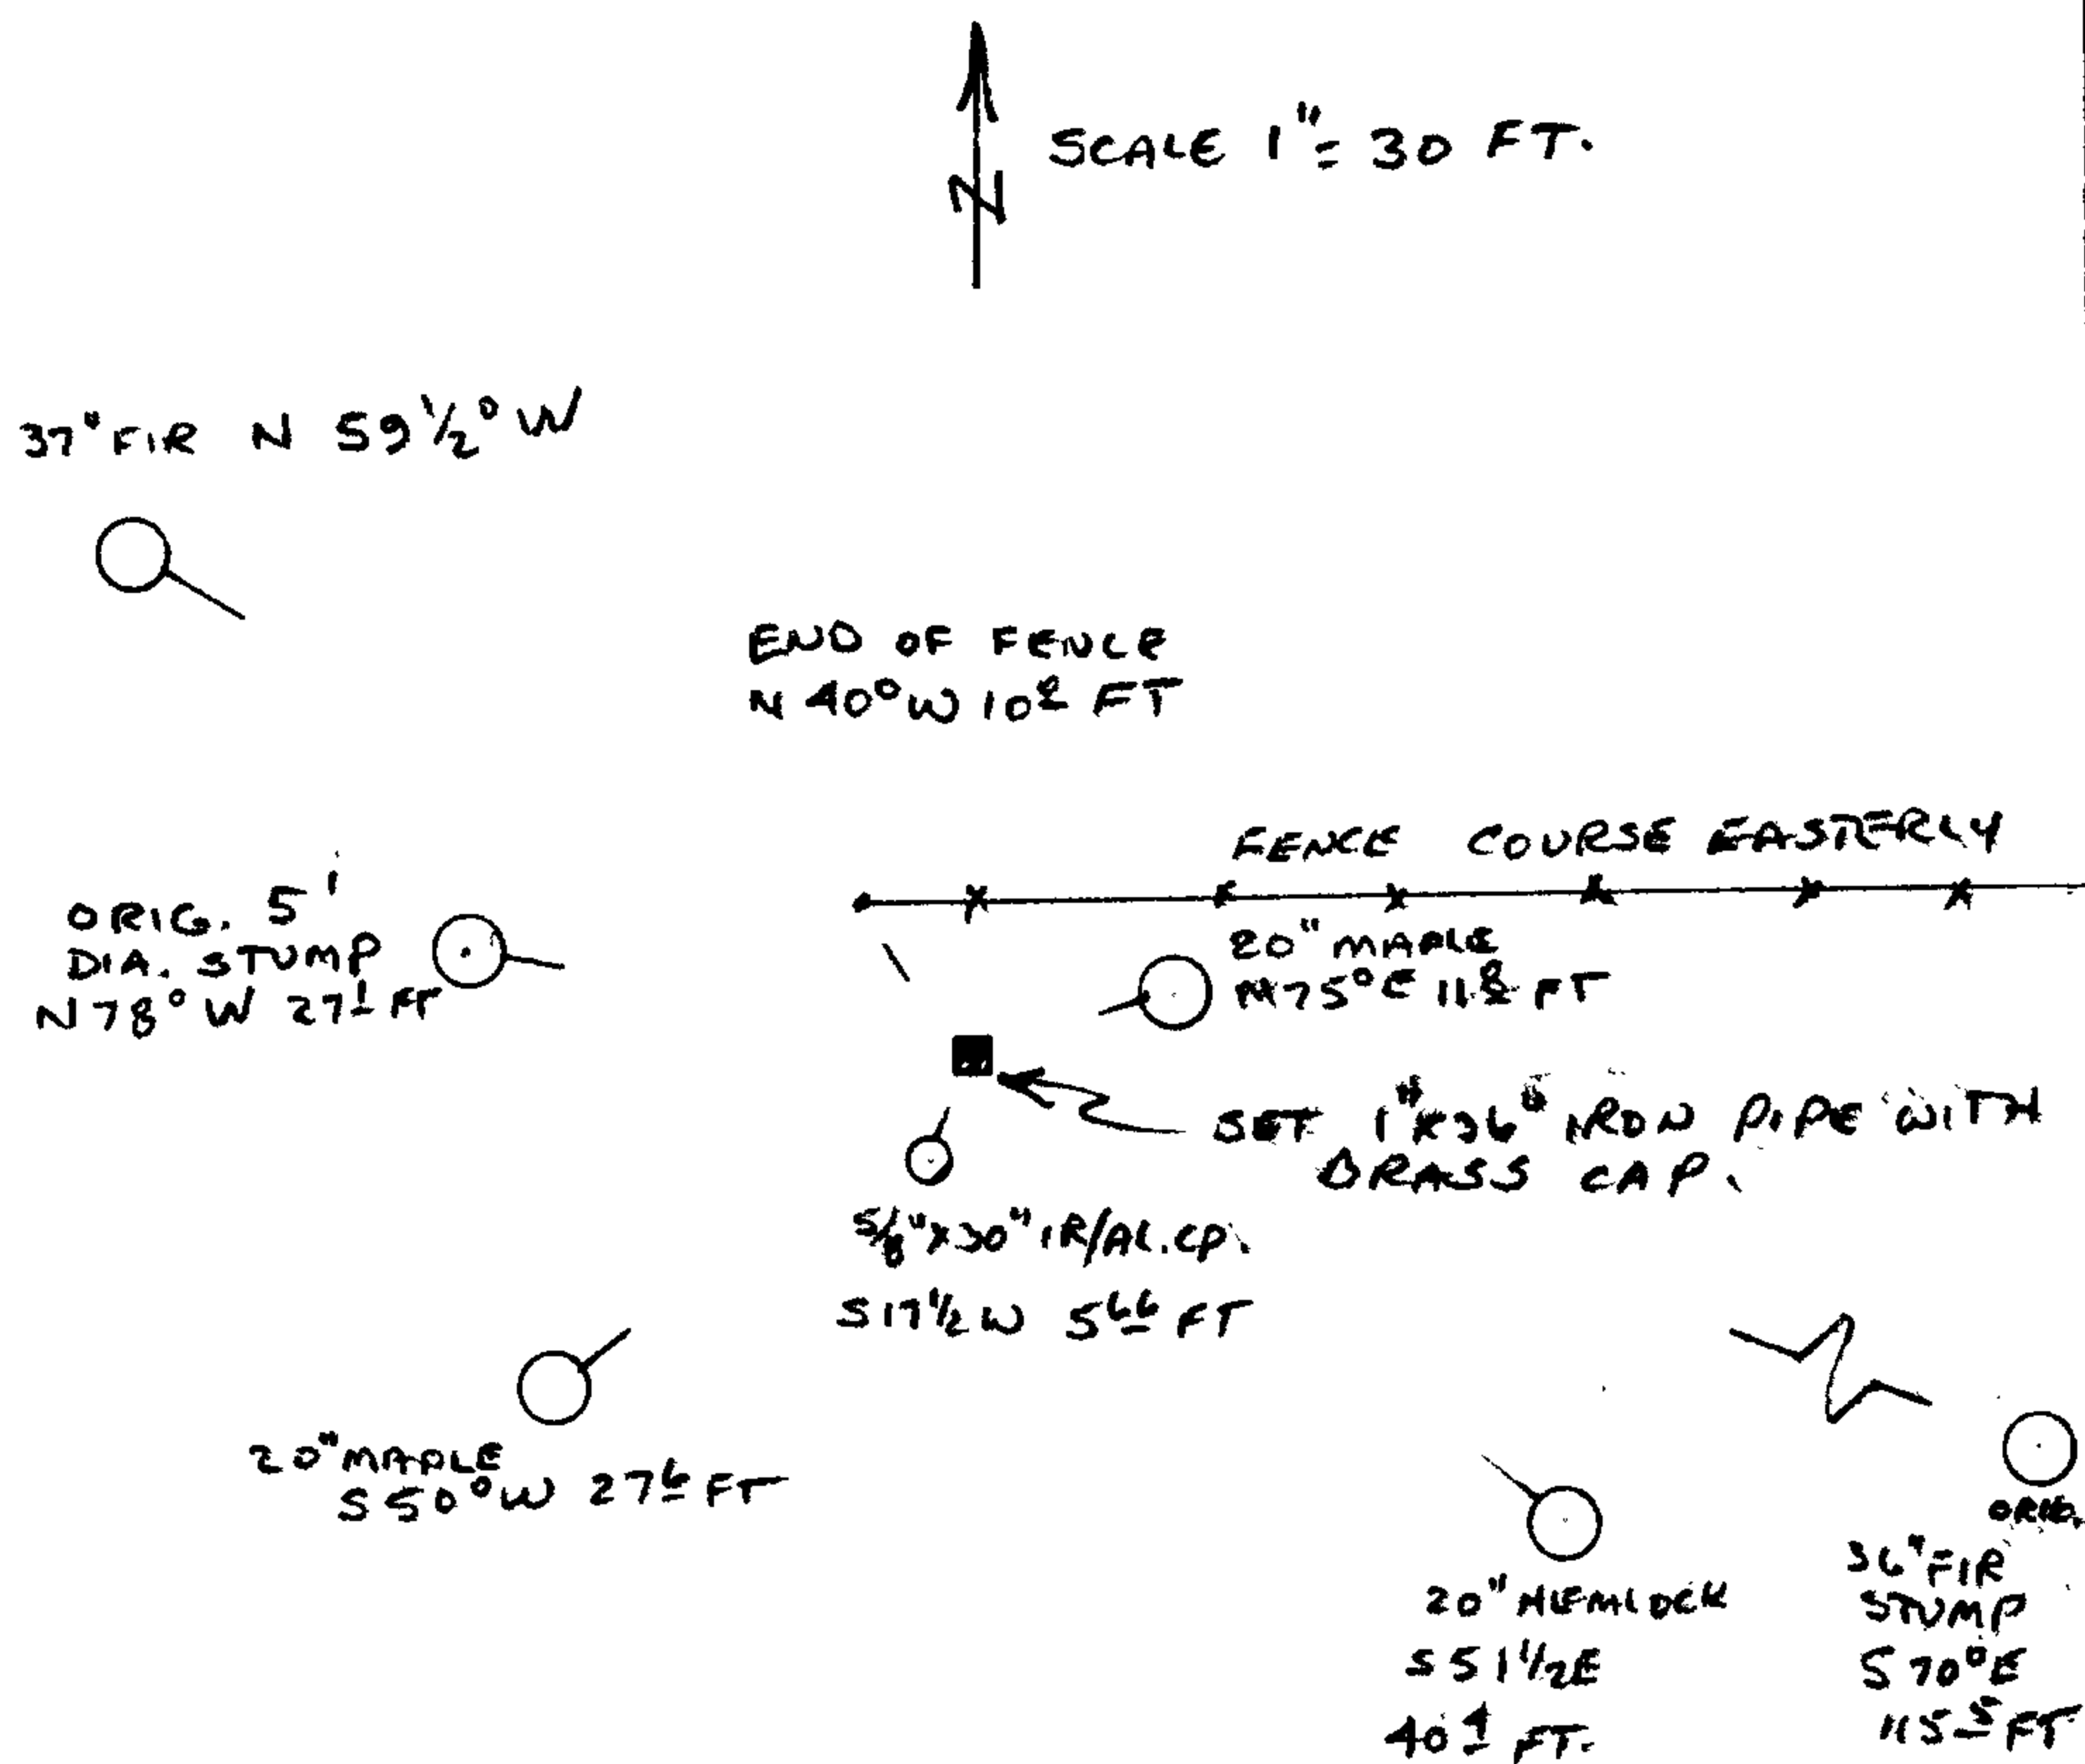 SCALE 1" = 30 FT.
N
37" FIR N 59 1/2° W
END OF FENCE
N 40° W 10 2 FT
FENCE COURSE EASTERLY
ORIG. 5'
DIA. STUMP
N 78° W 27 1 FT
20" MAPLE
N 75° E 11 8 FT
SET 1" x 36" IRON PIPE WITH
BRASS CAP.
5/8" x 30" IR/AL. CP.
S 17 1/2 W 5 66 FT
20" MAPLE
S 50° W 27 6 FT
20" HEMLOCK
S 51 1/2 E
40 4 FT.
ORIG.
36" FIR
STUMP
S 70° E
115 5 FT